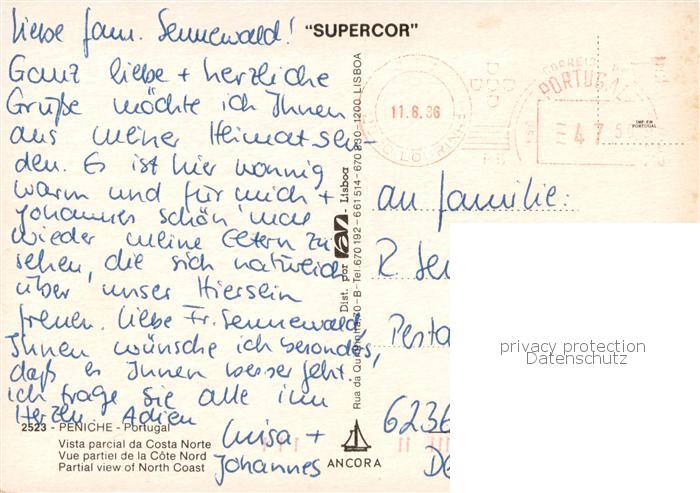 Liebe Fam. Sennewald!
"SUPERCOR"
Ganz liebe + herzliche
Grüße möchte ich Ihnen
aus meiner Heimat sen-
den. Es ist hier wonnig
warm und für mich +
Johannes schön 'mal
wieder meine Eltern zu
sehen, die sich natürlich
über unser Hiersein
freuen. Liebe Fr. Sennewald,
Ihnen wünsche ich besonders,
daß es Ihnen besser geht.
Ich trage Sie alle im
Herzen. Adieu
Luisa +
Johannes
2523 - PENICHE - Portugal
Vista parcial da Costa Norte
Vue partiel de la Côte Nord
Partial view of North Coast
Dist. por ran - Lisboa
Rua da Quintinha, 70-B-Tel. 670192-661514-670830-1200 LISBOA
ANCORA
11.6.86
CORREIO
PORTUGAL
47.5
IMP. EM
PORTUGAL
an Familie:
R. Sen
Pesta
6236
privacy protection
Datenschutz